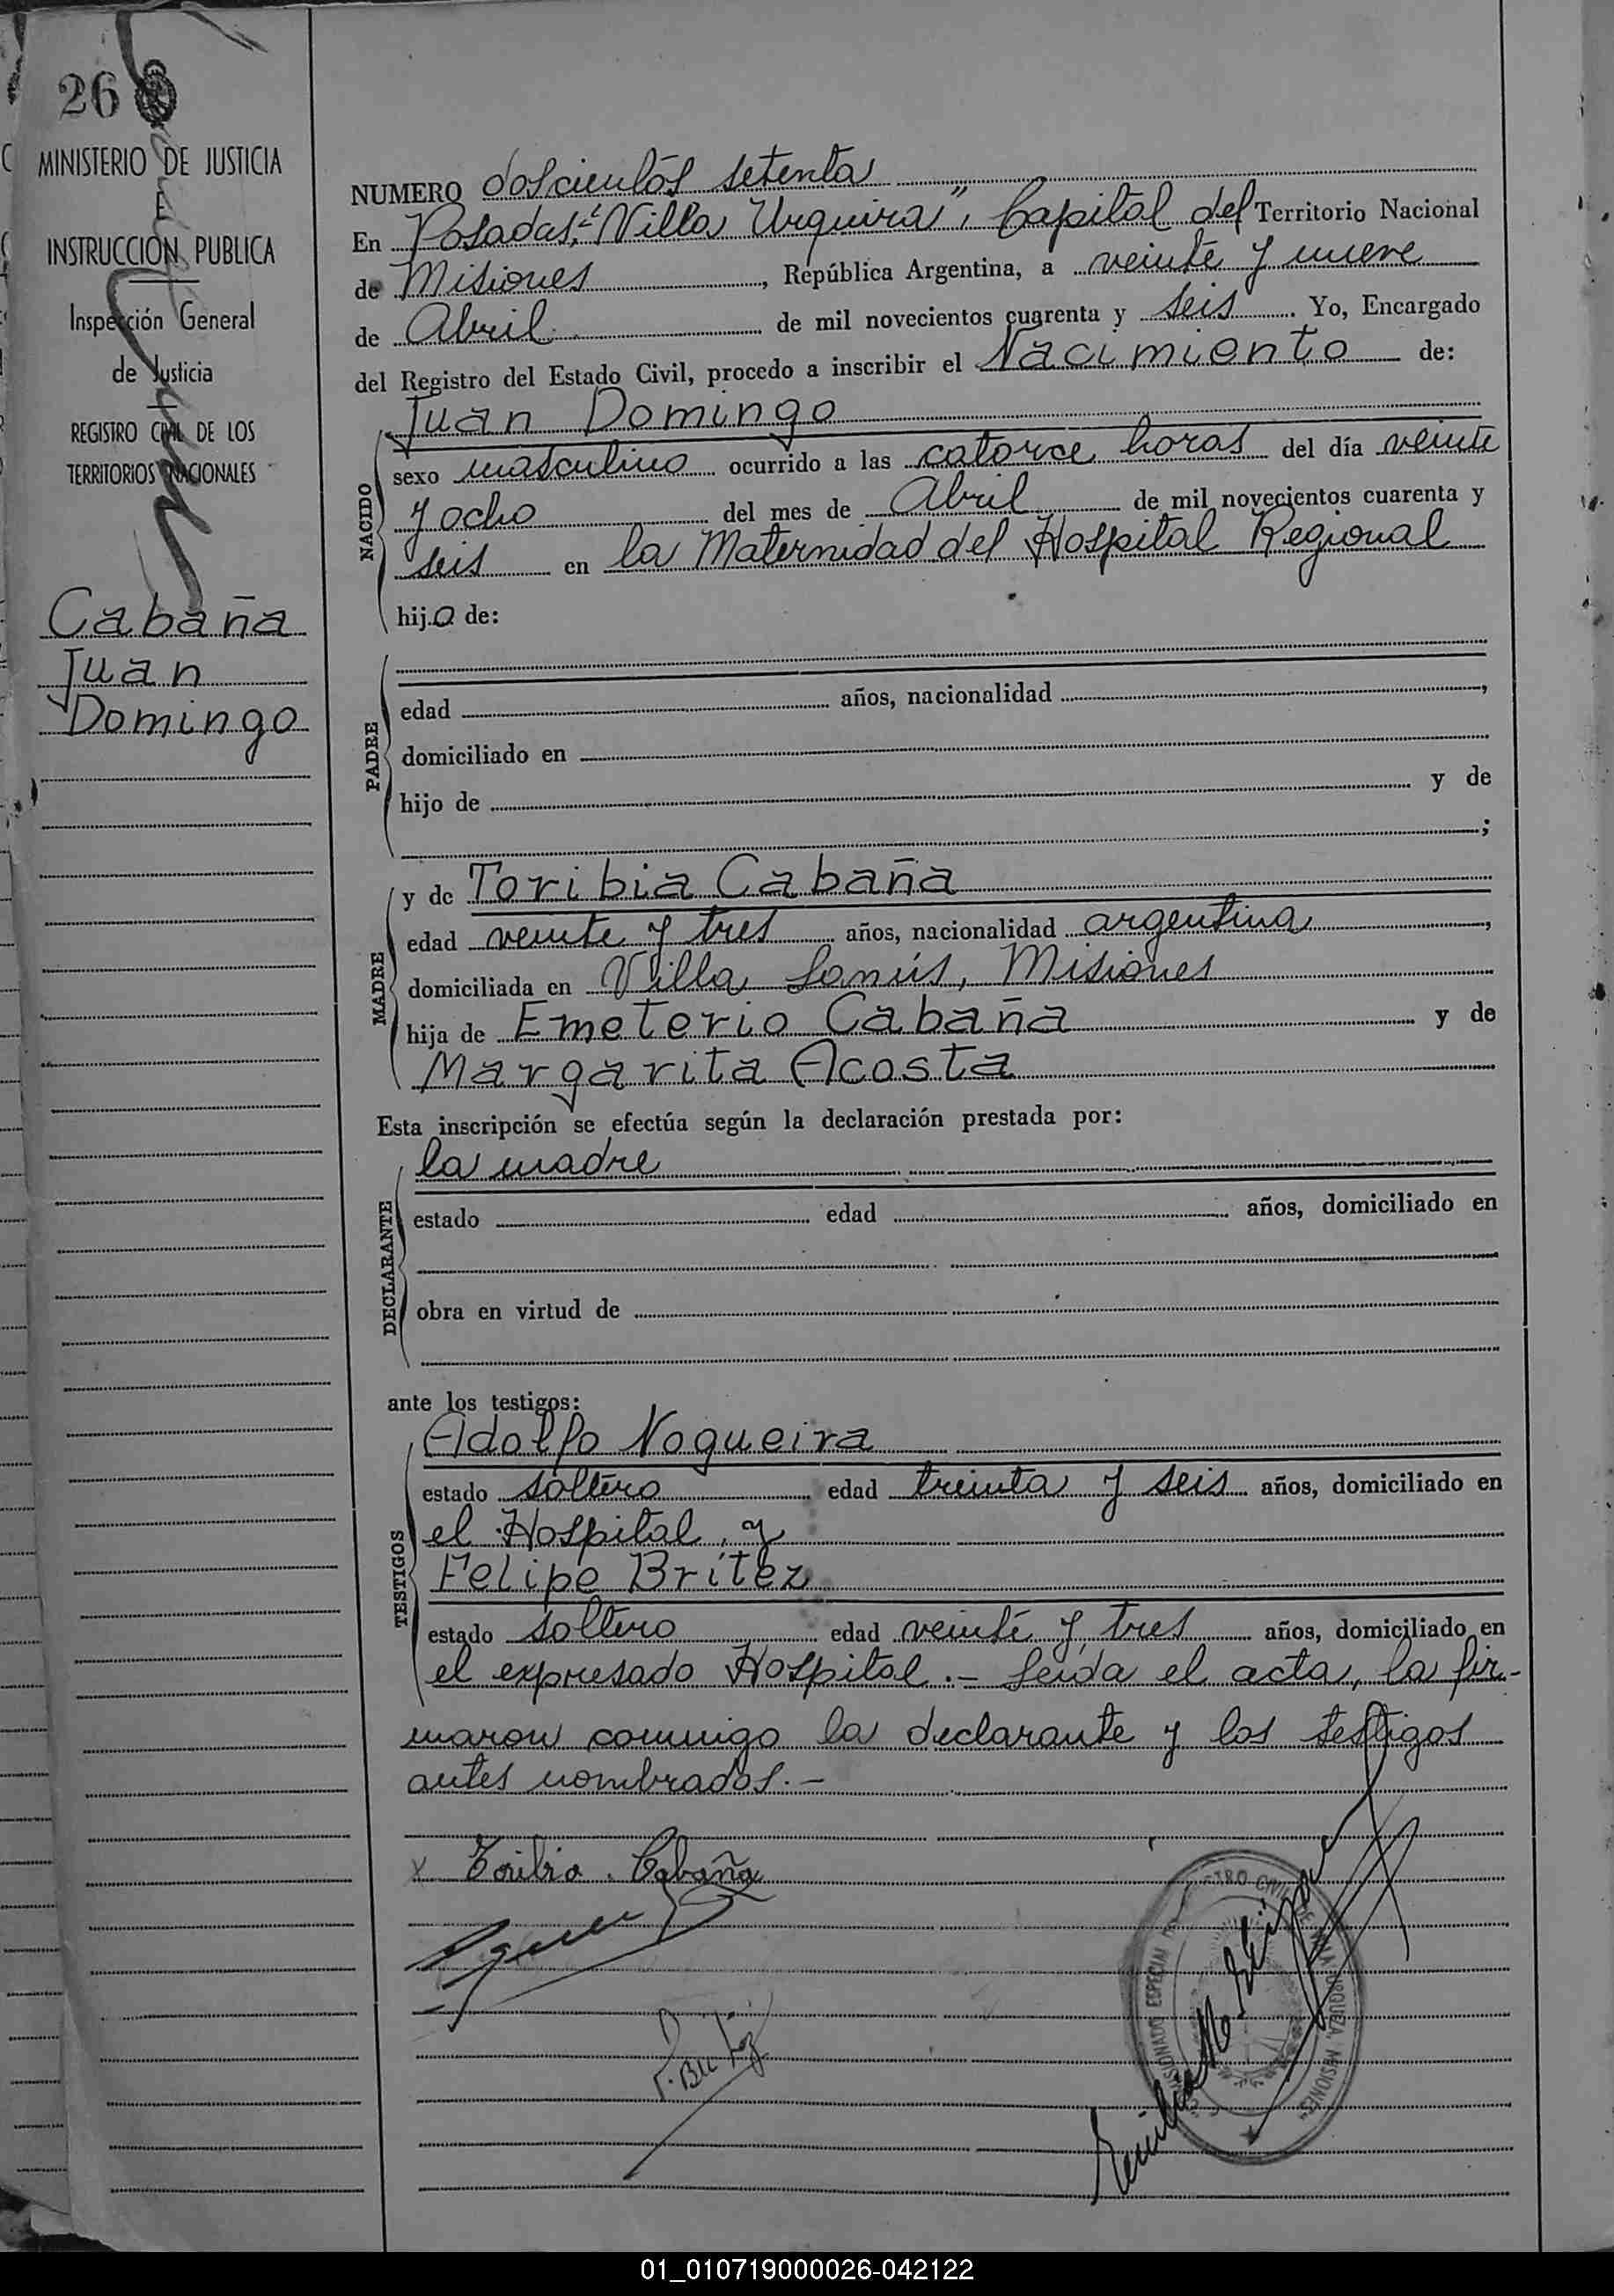 26
MINISTERIO DE JUSTICIA
E
INSTRUCCIÓN PUBLICA
Inspección General
de Justicia
REGISTRO CIVIL DE LOS
TERRITORIOS NACIONALES
Cabaña
Juan
Domingo
NUMERO doscientos setenta
En Posadas, "Villa Urquiza", Capital del Territorio Nacional
de Misiones, República Argentina, a veinte y nueve
de Abril de mil novecientos cuarenta y seis. Yo, Encargado
del Registro del Estado Civil, procedo a inscribir el Nacimiento de:
Juan Domingo
NACIDO
sexo masculino ocurrido a las catorce horas del día veinte
y ocho del mes de Abril de mil novecientos cuarenta y
seis en la Maternidad del Hospital Regional
hijo de:
PADRE
edad años, nacionalidad ,
domiciliado en
hijo de y de
;
MADRE
y de Toribia Cabaña
edad veinte y tres años, nacionalidad argentina,
domiciliada en Villa Lanús, Misiones
hija de Emeterio Cabaña y de
Margarita Acosta
Esta inscripción se efectúa según la declaración prestada por:
DECLARANTE
la madre
estado edad años, domiciliado en
obra en virtud de
ante los testigos:
TESTIGOS
Adolfo Nogueira
estado soltero edad treinta y seis años, domiciliado en
el Hospital, y
Felipe Britez
estado soltero edad veinte y tres años, domiciliado en
el expresado Hospital.- Leída el acta, la fir-
maron conmigo la declarante y los testigos
antes nombrados.-
x Toribia Cabaña
01_010719000026-042122